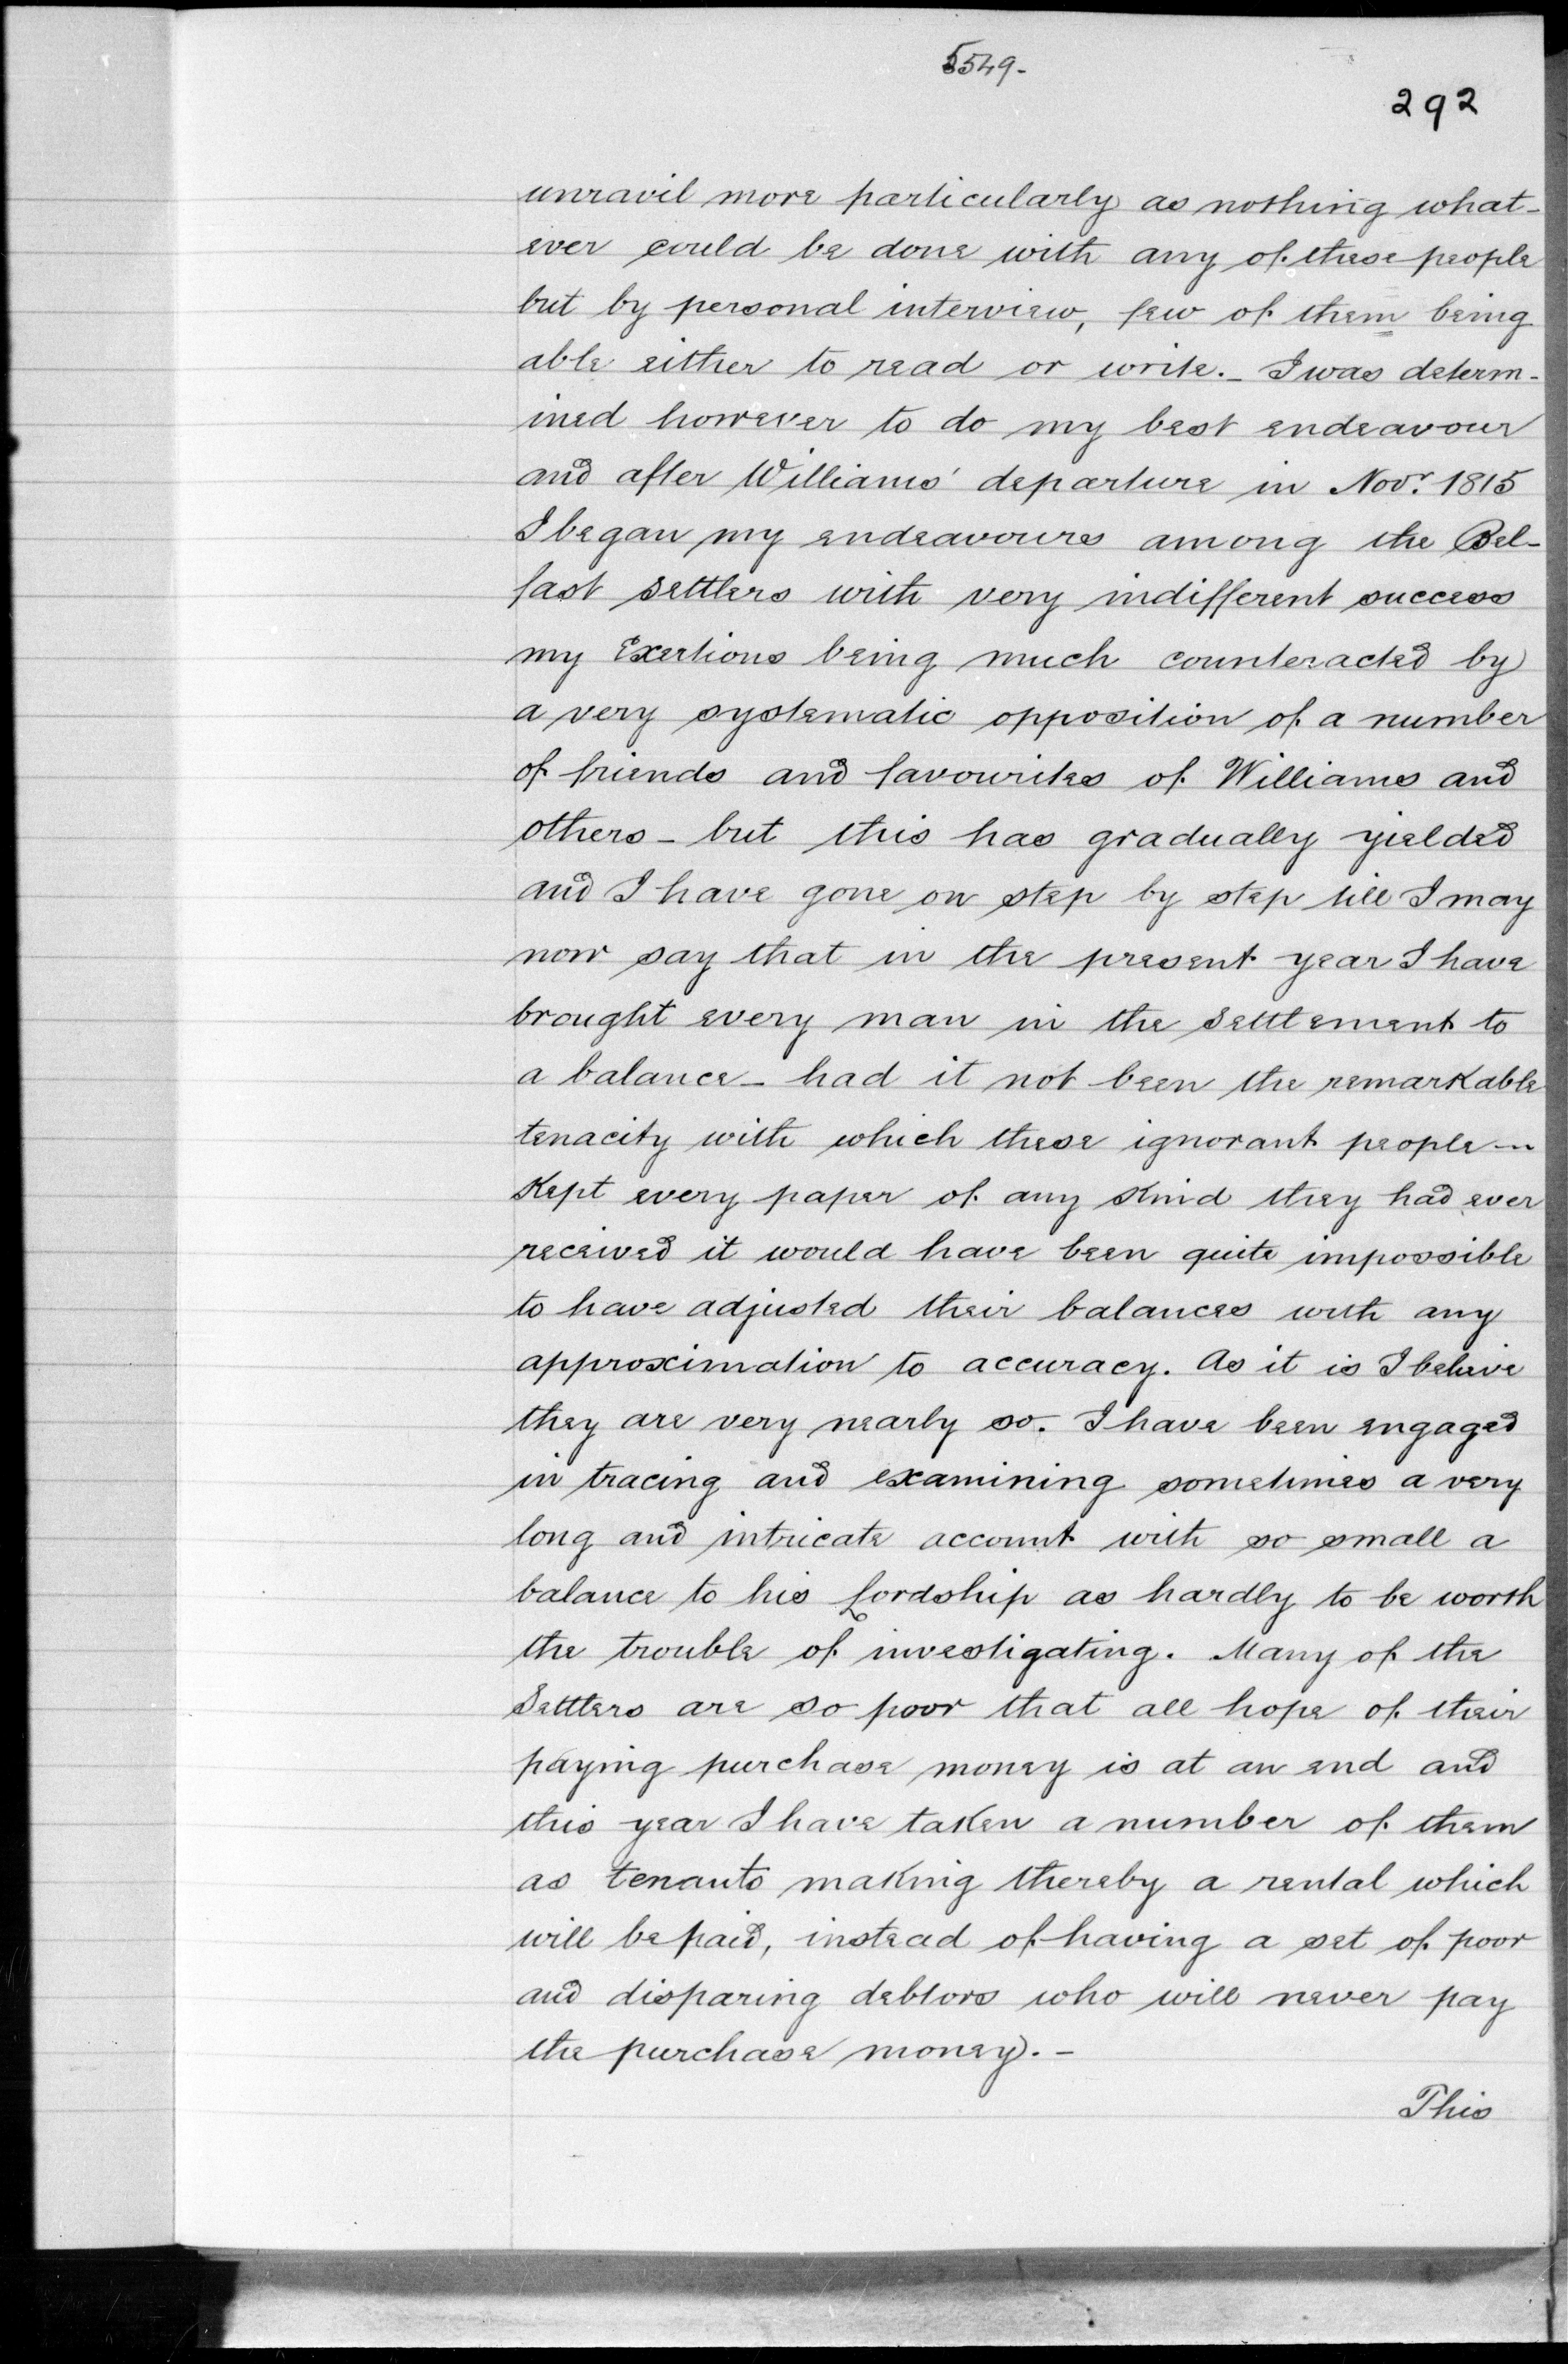 5549-
292
unravil more particularly as nothing what-
ever could be done with any of these people
but by personal interview, few of them being
able either to read or write. - I was determ-
ined however to do my best endeavour
and after Williams' departure in Novr. 1815
I began my endeavoures among the Bel-
fast settlers with very indifferent success
my Exertions being much counteracted by
a very systematic opposition of a number
of friends and favourites of Williams and
others - but this has gradually yielded
and I have gone on step by step till I may
now say that in the present year I have
brought every man in the settlement to
a balance - had it not been the remarkable
tenacity with which these ignorant people -
Kept every paper of any kind they had ever
received it would have been quite impossible
to have adjusted their balances with any
approximation to accuracy. As it is I beleive
they are very nearly so. I have been engaged
in tracing and examining sometimes a very
long and intricate account with so small a
balance to his Lordship as hardly to be worth
the trouble of investigating. Many of the
Settlers are so poor that all hope of their
paying purchase money is at an end and
this year I have taken a number of them
as tenants making thereby a rental which
will be paid, instead of having a set of poor
and disparing debtors who will never pay
the purchase money. -
This